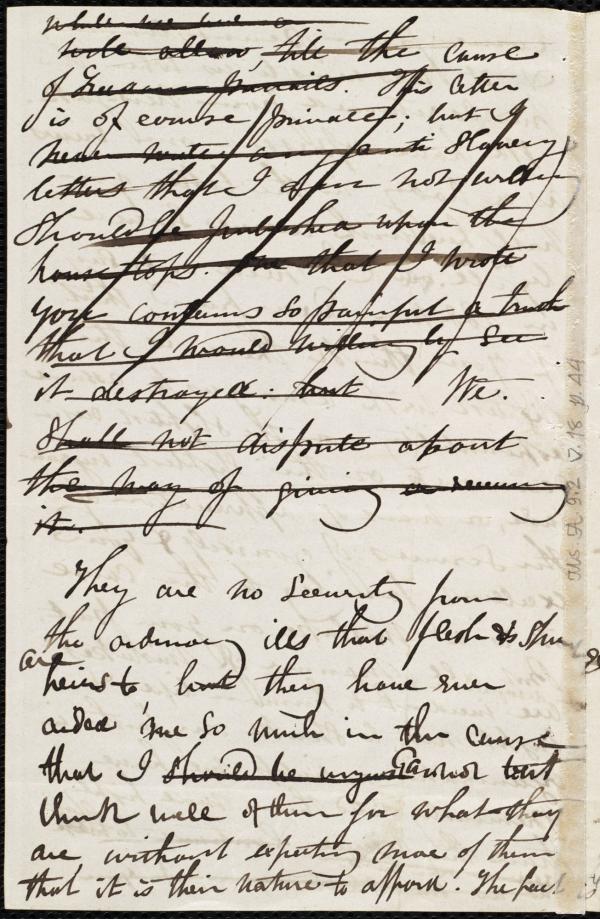 while we
will allow, till the cause
of Freedom prevails. This letter
is of course private; but I
never write any anti Slavery
letters that I am not willing
Should be published upon the
house tops. One that I wrote
you contains so painful a truth
that I would willingly see
it destroyed. but We.
Shall not dispute about
the way of giving or receiving
it.
They are no security from
the ordinary ills that flesh & Spirit
are
heirs to but they have ever
aided me so much in the cause
that I should be cannot but
think well of them for what they
are without expecting more of them
that it is their nature to afford. The fact
Ms. A 9.2 v. 18 p. 44